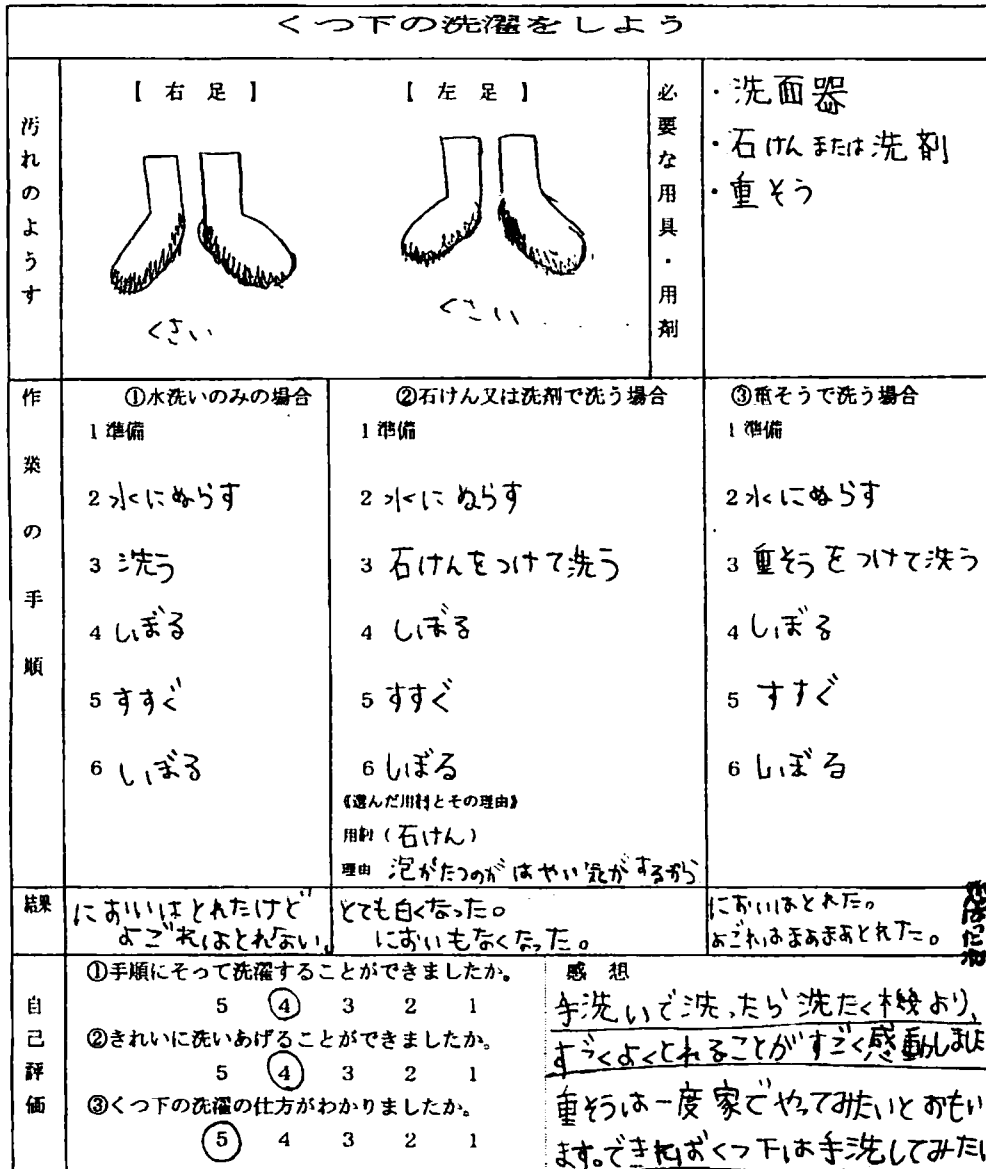 くつ下の洗濯をしよう
汚れのようす
【右足】
【左足】
くさい
くさい
必要な用具・用剤
・洗面器
・石けんまたは洗剤
・重そう
作業の手順
①水洗いのみの場合
1 準備
2 水にぬらす
3 洗う
4 しぼる
5 すすぐ
6 しぼる
②石けん又は洗剤で洗う場合
1 準備
2 水にぬらす
3 石けんをつけて洗う
4 しぼる
5 すすぐ
6 しぼる
《選んだ用剤とその理由》
用剤(石けん)
理由 泡がたつのがはやい気がするから
③重そうで洗う場合
1 準備
2 水にぬらす
3 重そうをつけて洗う
4 しぼる
5 すすぐ
6 しぼる
結果
においはとれたけど
よごれはとれない。
とても白くなった。
においもなくなった。
においはとれた。
よごれはまあまあとれた。
自己評価
①手順にそって洗濯することができましたか。
5 4 3 2 1
②きれいに洗いあげることができましたか。
5 4 3 2 1
③くつ下の洗濯の仕方がわかりましたか。
5 4 3 2 1
感想
手洗いで洗ったら洗たく機より、
すごくよくとれることがすごく感動しました
重そうは一度家でやってみたいとおもい
ます。できればくつ下は手洗してみたい